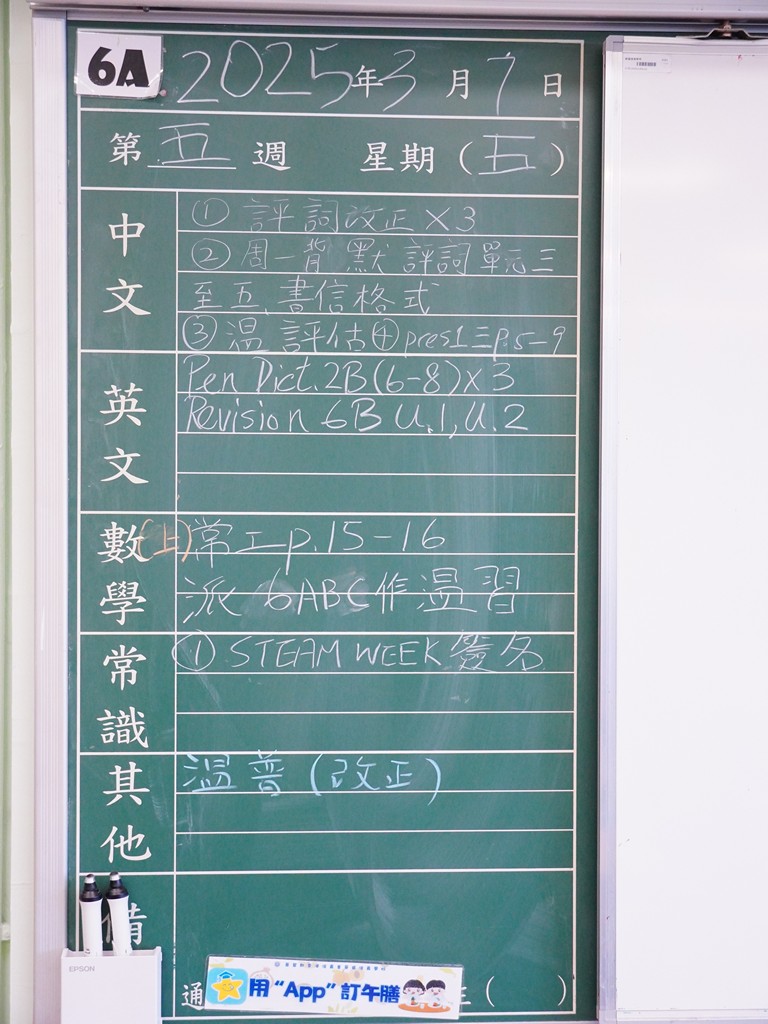 6A 2025年3月7日
第五週 星期(五)
中文
① 評詞改正×3
② 周一背默評詞單元三
至五、書信格式
③ 溫評估④pres1三p.5-9
英文
Pen Dict.2B(6-8)×3
Revision 6B U.1, U.2
數學
(上)常工p.15-16
派6ABC作溫習
常識
① STEAM WEEK簽名
其他
溫普(改正)
備
EPSON
通
用"App"訂午膳
( )